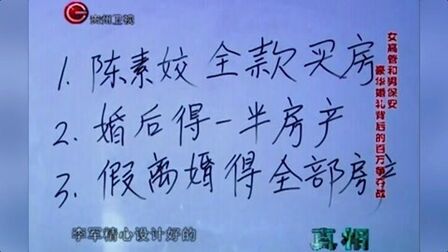 贵州卫视
女高管和男保安
豪华婚礼背后的百万争夺战
1. 陈素姣全款买房
2. 婚后得一半房产
3. 假离婚得全部房产
李军精心设计好的
真相